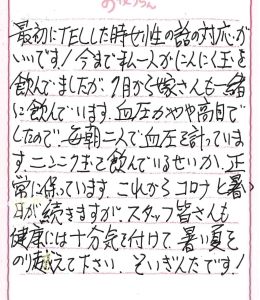 最初にTELした時女性の話の対応が
いいです！今まで私一人がにんにく玉を
飲んでましたが、9月から嫁さんも一緒
に飲んでいます。血圧がやや高目で
したので、毎朝二人で血圧を計っていま
すニンニク玉を飲んでいるせいか、正
常に保っています。これからコロナと暑い
日が続きますが、スタッフ皆さんも
健康には十分気を付けて、暑い夏を
のり越えて下さい。